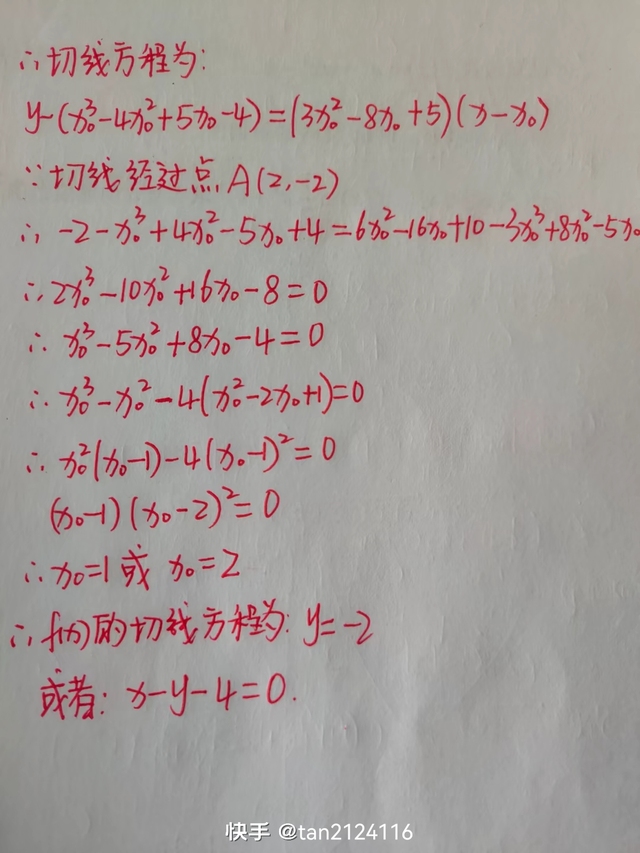 ∴切线方程为:
y-(x₀³-4x₀²+5x₀-4)=(3x₀²-8x₀+5)(x-x₀)
∵切线经过点A(2,-2)
∴-2-x₀³+4x₀²-5x₀+4=6x₀²-16x₀+10-3x₀³+8x₀²-5x₀
∴2x₀³-10x₀²+16x₀-8=0
∴x₀³-5x₀²+8x₀-4=0
∴x₀³-x₀²-4(x₀²-2x₀+1)=0
∴x₀²(x₀-1)-4(x₀-1)²=0
(x₀-1)(x₀-2)²=0
∴x₀=1或x₀=2
∴f(x)的切线方程为:y=-2
或者:x-y-4=0.
快手 @tan2124116